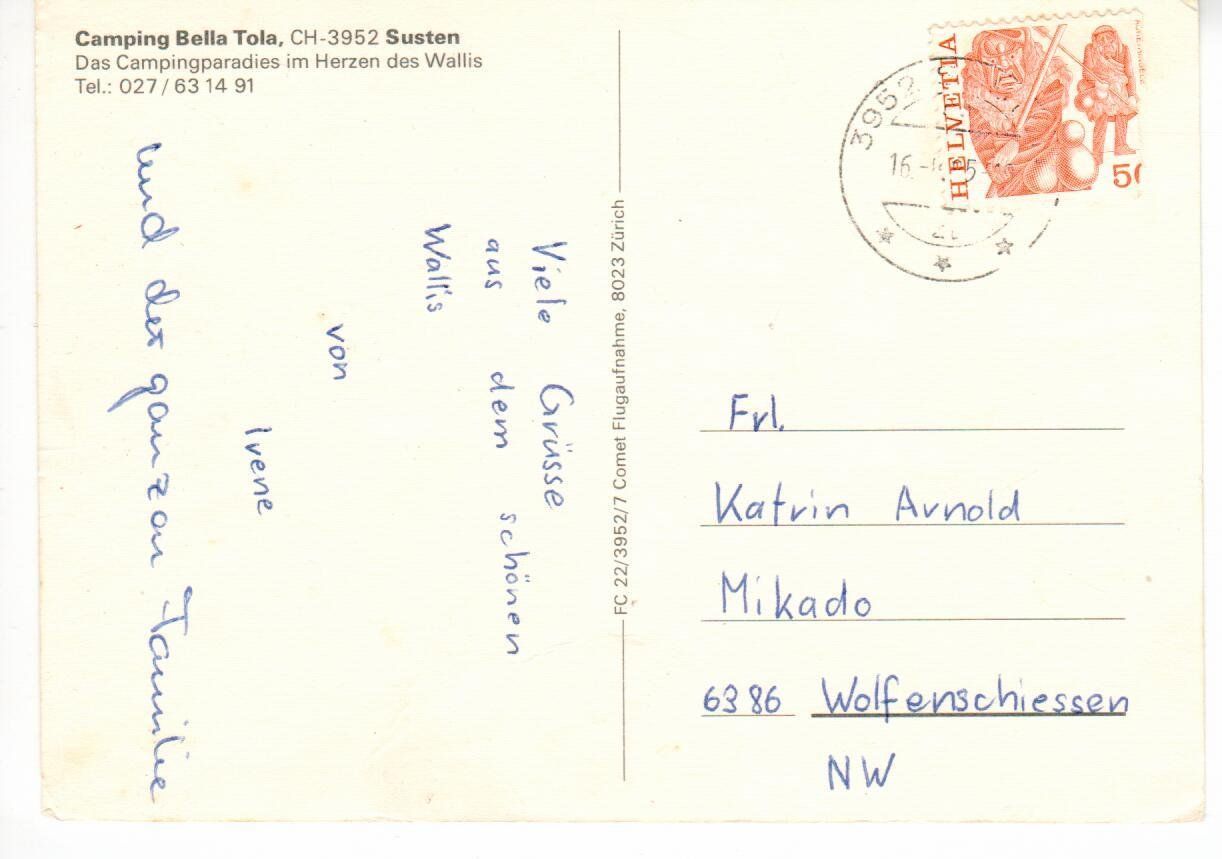 Camping Bella Tola, CH-3952 Susten
Das Campingparadies im Herzen des Wallis
Tel.: 027/63 14 91
Viele Grüsse
aus dem schönen
Wallis
von
Irene
und der ganzen Familie
FC 22/3952/7 Comet Flugaufnahme, 8023 Zürich
HELVETIA
50
3952
16.
Frl.
Katrin Arnold
Mikado
6386 Wolfenschiessen
NW